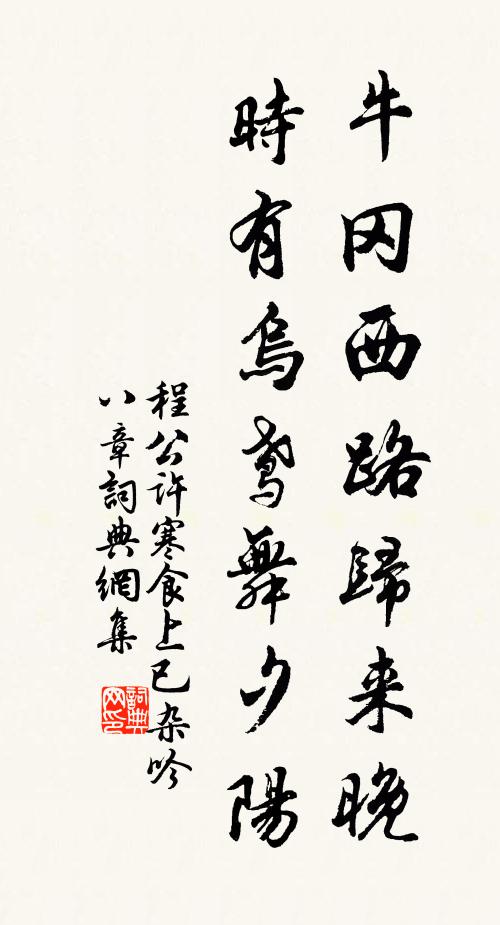 牛冈西路歸来晚
時有烏鳶舞夕陽
程公許寒食上巳杂吟
八章詞典網集
詞典網印